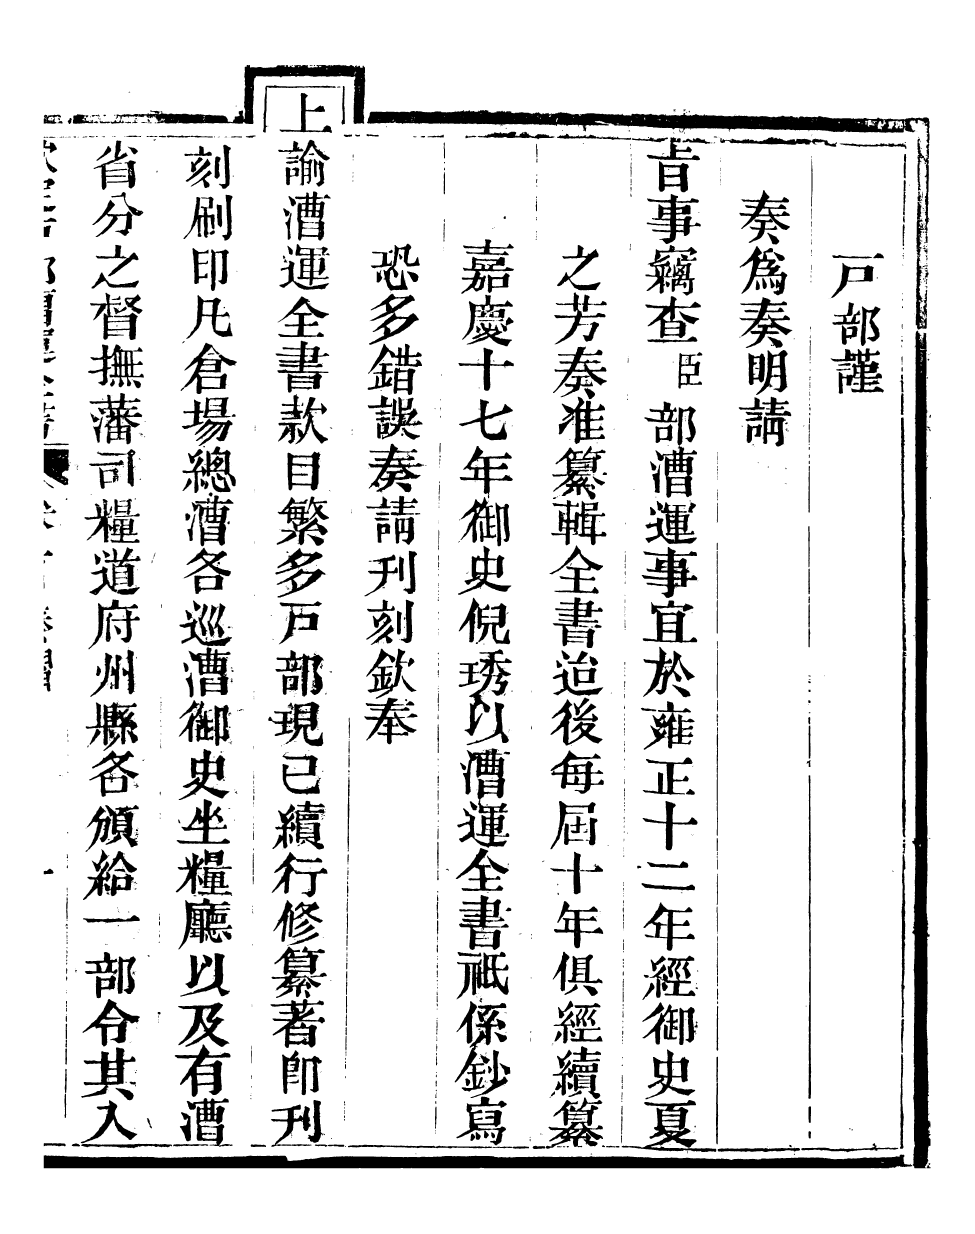 戸部謹
奏爲奏明請
旨事竊查臣部漕運事宜於雍正十二年經御史夏
之芳奏准纂輯全書迨後每屆十年俱經續纂
嘉慶十七年御史倪琇以漕運全書祇係鈔寫
恐多錯誤奏請刊刻欽奉
上諭漕運全書款目繁多戸部現已續行修纂著卽刊
刻刷印凡倉場總漕各巡漕御史坐糧廳以及有漕
省分之督撫藩司糧道府州縣各頒給一部令其入